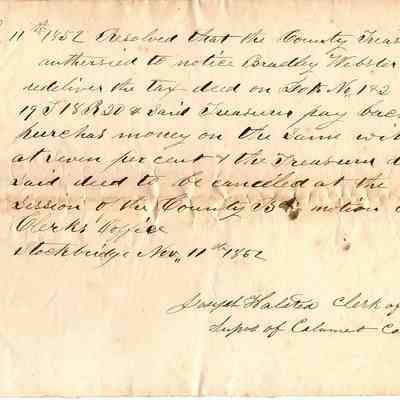 11th 1852 Resolved that the County Treas
authorised to notice Bradley Webster
redeliver the tax deed on Lots No, 1 & 2
19 T 18 R 20 & Said Treasurer pay back
purchas money on the Same wit
at Seven per cent & the Treasurer d
Said deed to be canciled at the
Session of the County Bd motion
Clerks office
Stockbridge Nov,, 11th 1852
Joseph Halsted Clerk of
Supos of Calumet Co